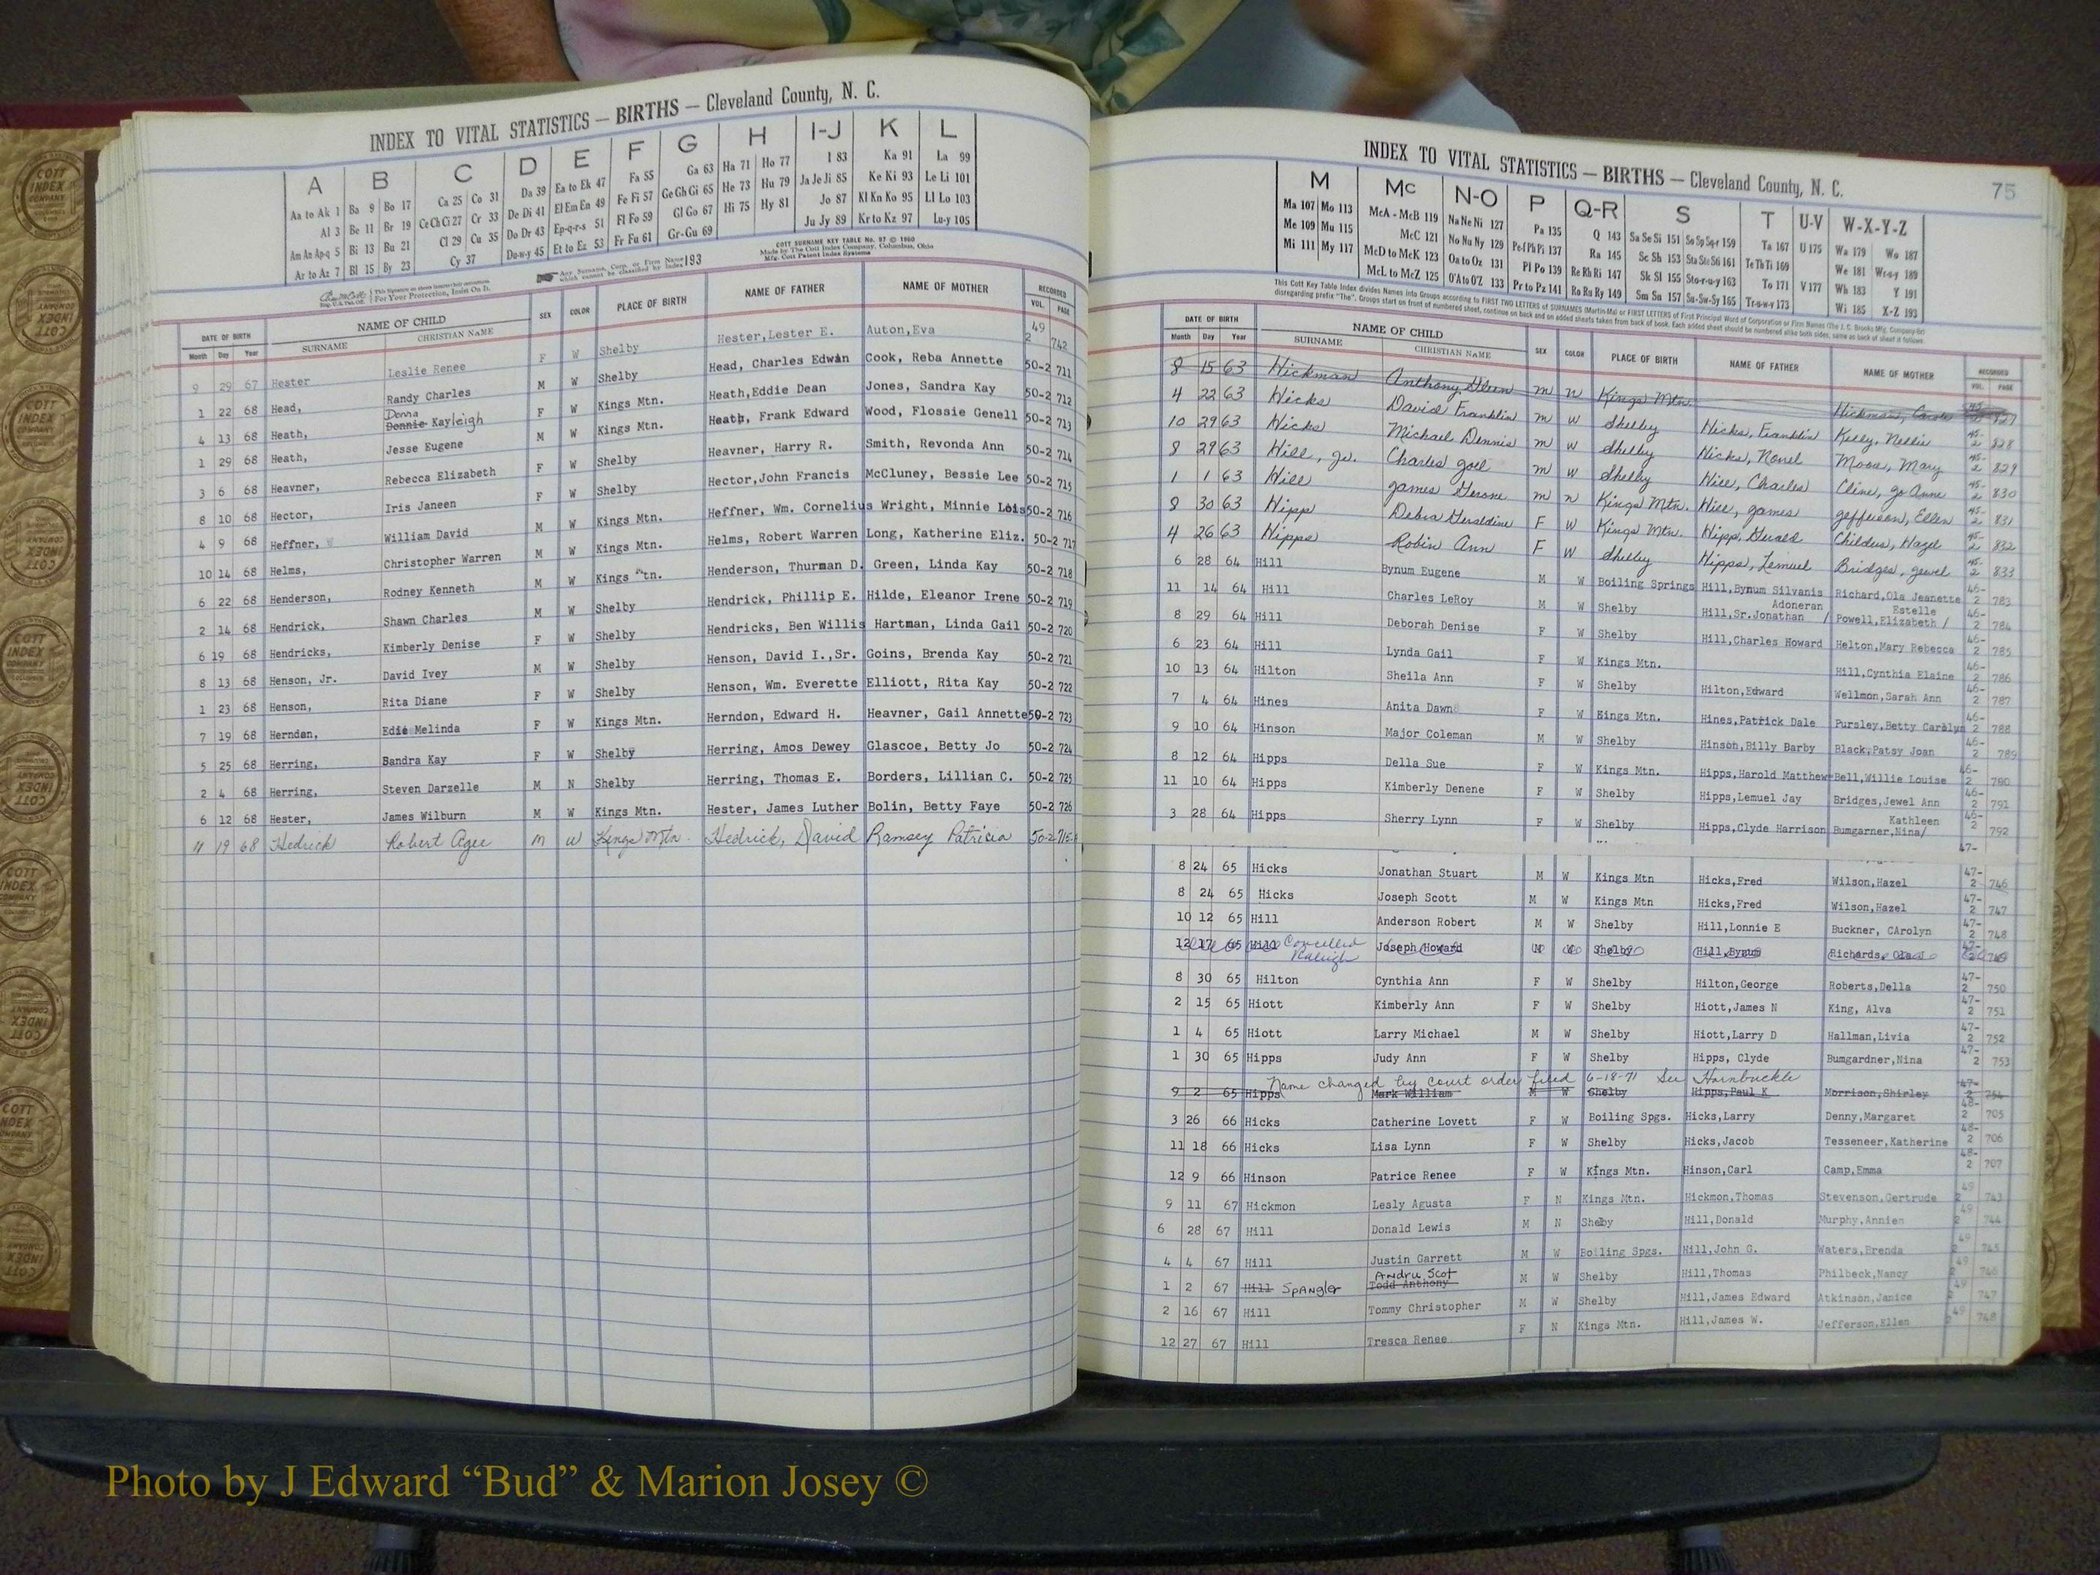 INDEX TO VITAL STATISTICS — BIRTHS — Cleveland County, N. C.
A B C D E F G H I-J K L
Aa to Ak 1 Ba 9 Bo 17 Ca 25 Co 31 Da 39 Ea to Ek 47 Fa 55 Ga 63 Ha 71 Ho 77 I 83 Ka 91 La 99
Al 3 Be 11 Br 19 Ce Ch Ci 27 Cr 33 De Di 41 El Em En 49 Fe Fi 57 Ge Gh Gi 65 He 73 Hu 79 Ja Je Ji 85 Ke Ki 93 Le Li 101
Am An Ap-q 5 Bi 13 Bu 21 Cl 29 Cu 35 Do Dr 43 Ep-q-r-s 51 Fl Fo 59 Gl Go 67 Hi 75 Hy 81 Jo 87 Kl Kn Ko 95 Ll Lo 103
Ar to Az 7 Bl 15 By 23 Cy 37 Du-w-y 45 Et to Ez 53 Fr Fu 61 Gr-Gu 69 Ju Jy 89 Kr to Kz 97 Lu-y 105
COTT SURNAME KEY TABLE No. 97 © 1960
Made by The Cott Index Company, Columbus, Ohio
Mfg. Cott Patent Index Systems
Any Surname, Corp. or Firm Name which cannot be classified by Index 193
For Your Protection, Insist On It.
DATE OF BIRTH NAME OF CHILD SEX COLOR PLACE OF BIRTH NAME OF FATHER NAME OF MOTHER RECORDED
Month Day Year SURNAME CHRISTIAN NAME VOL. PAGE
9 29 67 Hester Leslie Renee F W Shelby Hester,Lester E. Auton,Eva 49 2 742
1 22 68 Head, Randy Charles M W Shelby Head, Charles Edwin Cook, Reba Annette 50-2 711
4 13 68 Heath, Donna Donnie Kayleigh F W Kings Mtn. Heath,Eddie Dean Jones, Sandra Kay 50-2 712
1 29 68 Heath, Jesse Eugene M W Kings Mtn. Heath, Frank Edward Wood, Flossie Genell 50-2 713
3 6 68 Heavner, Rebecca Elizabeth F W Shelby Heavner, Harry R. Smith, Revonda Ann 50-2 714
8 10 68 Hector, Iris Janeen F W Shelby Hector,John Francis McCluney, Bessie Lee 50-2 715
4 9 68 Heffner, William David M W Kings Mtn. Heffner, Wm. Cornelius Wright, Minnie Lois 50-2 716
10 14 68 Helms, Christopher Warren M W Kings Mtn. Helms, Robert Warren Long, Katherine Eliz. 50-2 717
6 22 68 Henderson, Rodney Kenneth M W Kings Mtn. Henderson, Thurman D. Green, Linda Kay 50-2 718
2 14 68 Hendrick, Shawn Charles M W Shelby Hendrick, Phillip E. Hilde, Eleanor Irene 50-2 719
6 19 68 Hendricks, Kimberly Denise F W Shelby Hendricks, Ben Willis Hartman, Linda Gail 50-2 720
8 13 68 Henson, Jr. David Ivey M W Shelby Henson, David I.,Sr. Goins, Brenda Kay 50-2 721
1 23 68 Henson, Rita Diane F W Shelby Henson, Wm. Everette Elliott, Rita Kay 50-2 722
7 19 68 Herndan, Edie Melinda F W Kings Mtn. Herndon, Edward H. Heavner, Gail Annette 50-2 723
5 25 68 Herring, Bandra Kay F W Shelby Herring, Amos Dewey Glascoe, Betty Jo 50-2 724
2 4 68 Herring, Steven Darzelle M N Shelby Herring, Thomas E. Borders, Lillian C. 50-2 725
6 12 68 Hester, James Wilburn M W Kings Mtn. Hester, James Luther Bolin, Betty Faye 50-2 726
11 19 68 Hedrick Robert Agee M W Kings Mtn. Hedrick, David Ramsey Patricia 50-2 715-A
INDEX TO VITAL STATISTICS — BIRTHS — Cleveland County, N. C. 75
M Mc N-O P Q-R S T U-V W-X-Y-Z
Ma 107 Mo 113 McA - McB 119 Na Ne Ni 127 Pa 135 Q 143 Sa Se Si 151 So Sp Sq-r 159 Ta 167 U 175 Wa 179 Wo 187
Me 109 Mu 115 McC 121 No Nu Ny 129 Pe-f Ph Pi 137 Ra 145 Sc Sh 153 Sta Ste Sti 161 Te Th Ti 169 We 181 Wr-u-y 189
Mi 111 My 117 McD to McK 123 Oa to Oz 131 Pl Po 139 Re Rh Ri 147 Sk Sl 155 Sto-r-u-y 163 To 171 V 177 Wh 183 Y 191
McL to McZ 125 O'A to O'Z 133 Pr to Pz 141 Ro Ru Ry 149 Sm Sn 157 Su-Sw-Sy 165 Tr-u-w-y 173 Wi 185 X-Z 193
This Cott Key Table Index divides Names into Groups according to FIRST TWO LETTERS of SURNAMES (Martin-Ma) or FIRST LETTERS of First Principal Word of Corporation or Firm Names (The J. C. Brooks Mfg. Company-Br)
disregarding prefix "The". Groups start on front of numbered sheet, continue on back and on added sheets taken from back of book. Each added sheet should be numbered alike both sides, same as back of sheet it follows.
DATE OF BIRTH NAME OF CHILD SEX COLOR PLACE OF BIRTH NAME OF FATHER NAME OF MOTHER RECORDED
Month Day Year SURNAME CHRISTIAN NAME VOL. PAGE
8 15 63 Hickman Anthony Glenn M N Kings Mtn. Hickman, Carole 45- 827
4 22 63 Hicks David Franklin M W Shelby Hicks, Franklin Kelly, Nellie 45-2 828
10 29 63 Hicks Michael Dennis M W Shelby Hicks, Novel Moss, Mary 45-2 829
8 29 63 Hill, Jr. Charles Joel M W Shelby Hill, Charles Cline, Jo Anne 45-2 830
1 1 63 Hill James Gerome M N Kings Mtn. Hill, James Jefferson, Ellen 45-2 831
8 30 63 Hipp Debra Geraldine F W Kings Mtn. Hipp, Gerald Childers, Hazel 45-2 832
4 26 63 Hipps Robin Ann F W Shelby Hipps, Lemuel Bridges, Jewel 45-2 833
6 28 64 Hill Bynum Eugene M W Boiling Springs Hill,Bynum Silvanis Richard,Ola Jeanette 46-2 783
11 14 64 Hill Charles LeRoy M W Shelby Hill,Sr.Jonathan / Adoneran Powell,Elizabeth / Estelle 46-2 784
8 29 64 Hill Deborah Denise F W Shelby Hill,Charles Howard Helton,Mary Rebecca 46-2 785
6 23 64 Hill Lynda Gail F W Kings Mtn. Hill,Cynthia Elaine 46-2 786
10 13 64 Hilton Sheila Ann F W Shelby Hilton,Edward Wellmon,Sarah Ann 46-2 787
7 4 64 Hines Anita Dawn F W Kings Mtn. Hines,Patrick Dale Pursley,Betty Carolyn 46-2 788
9 10 64 Hinson Major Coleman M W Shelby Hinson,Billy Barby Black,Patsy Joan 46-2 789
8 12 64 Hipps Della Sue F W Kings Mtn. Hipps,Harold Matthew Bell,Willie Louise 46-2 790
11 10 64 Hipps Kimberly Denene F W Shelby Hipps,Lemuel Jay Bridges,Jewel Ann 46-2 791
3 28 64 Hipps Sherry Lynn F W Shelby Hipps,Clyde Harrison Bumgarner,Nina/ Kathleen 46-2 792
47-
8 24 65 Hicks Jonathan Stuart M W Kings Mtn Hicks,Fred Wilson,Hazel 47-2 746
8 24 65 Hicks Joseph Scott M W Kings Mtn Hicks,Fred Wilson,Hazel 47-2 747
10 12 65 Hill Anderson Robert M W Shelby Hill,Lonnie E Buckner, CArolyn 47-2 748
12 17 65 Hill Cancelled Raleigh Joseph Howard M W Shelby Hill,Bynum Richards, Ola J 47-2 749
8 30 65 Hilton Cynthia Ann F W Shelby Hilton,George Roberts,Della 47-2 750
2 15 65 Hiott Kimberly Ann F W Shelby Hiott,James N King, Alva 47-2 751
1 4 65 Hiott Larry Michael M W Shelby Hiott,Larry D Hallman,Livia 47-2 752
1 30 65 Hipps Judy Ann F W Shelby Hipps, Clyde Bumgardner,Nina 47-2 753
Name changed by court order filed 6-18-71 See Hornbuckle
9 2 65 Hipps Mark William M W Shelby Hipps,Paul K Morrison,Shirley 47-2 754
3 26 66 Hicks Catherine Lovett F W Boiling Spgs. Hicks,Larry Denny,Margaret 48-2 705
11 18 66 Hicks Lisa Lynn F W Shelby Hicks,Jacob Tesseneer,Katherine 48-2 706
12 9 66 Hinson Patrice Renee F W Kings Mtn. Hinson,Carl Camp,Emma 48-2 707
9 11 67 Hickmon Lesly Agusta F N Kings Mtn. Hickmon,Thomas Stevenson,Gertrude 49 2 743
6 28 67 Hill Donald Lewis M N Shelby Hill,Donald Murphy,Annien 49 2 744
4 4 67 Hill Justin Garrett M W Boiling Spgs. Hill,John G. Waters,Brenda 49 2 745
1 2 67 Hill Spangler Andru Scot Todd Anthony M W Shelby Hill,Thomas Philbeck,Nancy 49 2 746
2 16 67 Hill Tommy Christopher M W Shelby Hill,James Edward Atkinson,Janice 49 2 747
12 27 67 Hill Tresca Renee F N Kings Mtn. Hill,James W. Jefferson,Ellen 49 2 748
Photo by J Edward “Bud” & Marion Josey ©